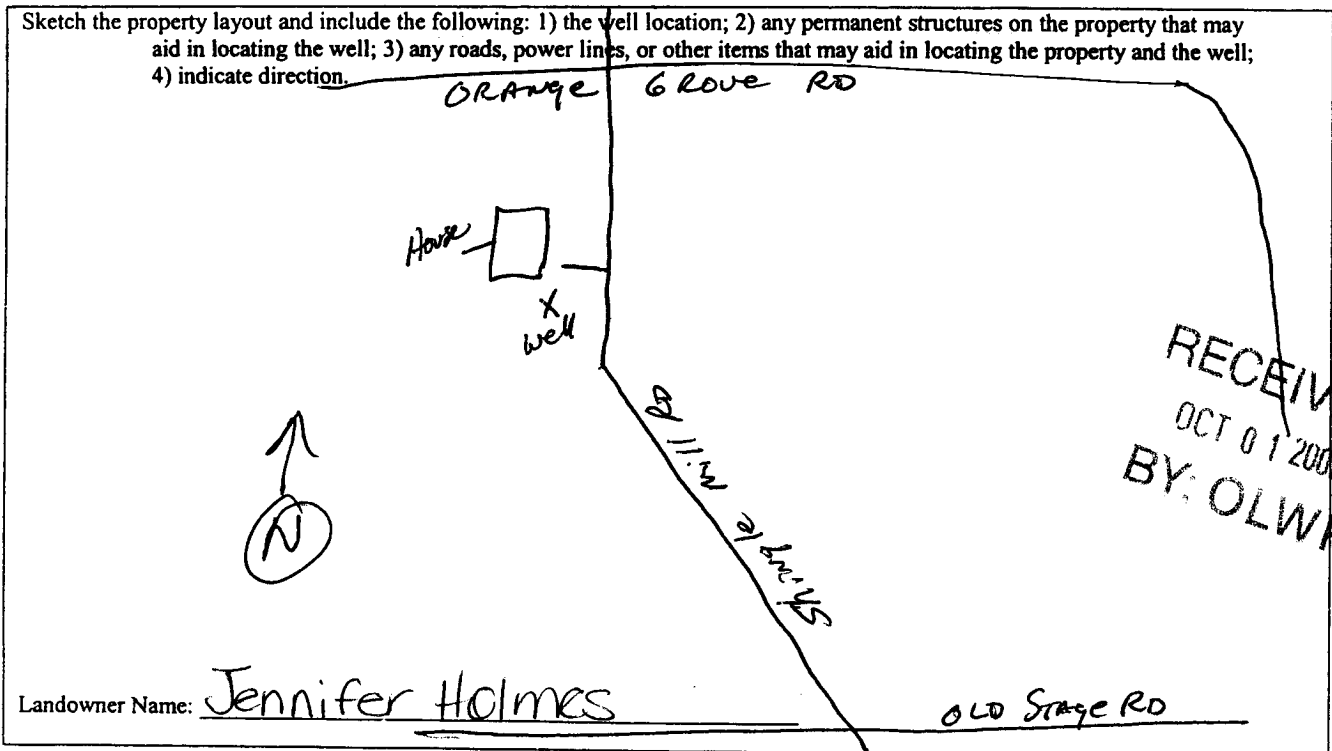 Sketch the property layout and include the following: 1) the well location; 2) any permanent structures on the property that may
aid in locating the well; 3) any roads, power lines, or other items that may aid in locating the property and the well;
4) indicate direction.
ORANGE GROVE RD
House
X
well
RECEIV
OCT 0 1 200
BY: OLW
Shingle Mill Rd
N
Landowner Name: Jennifer Holmes
OLD STAGE RD